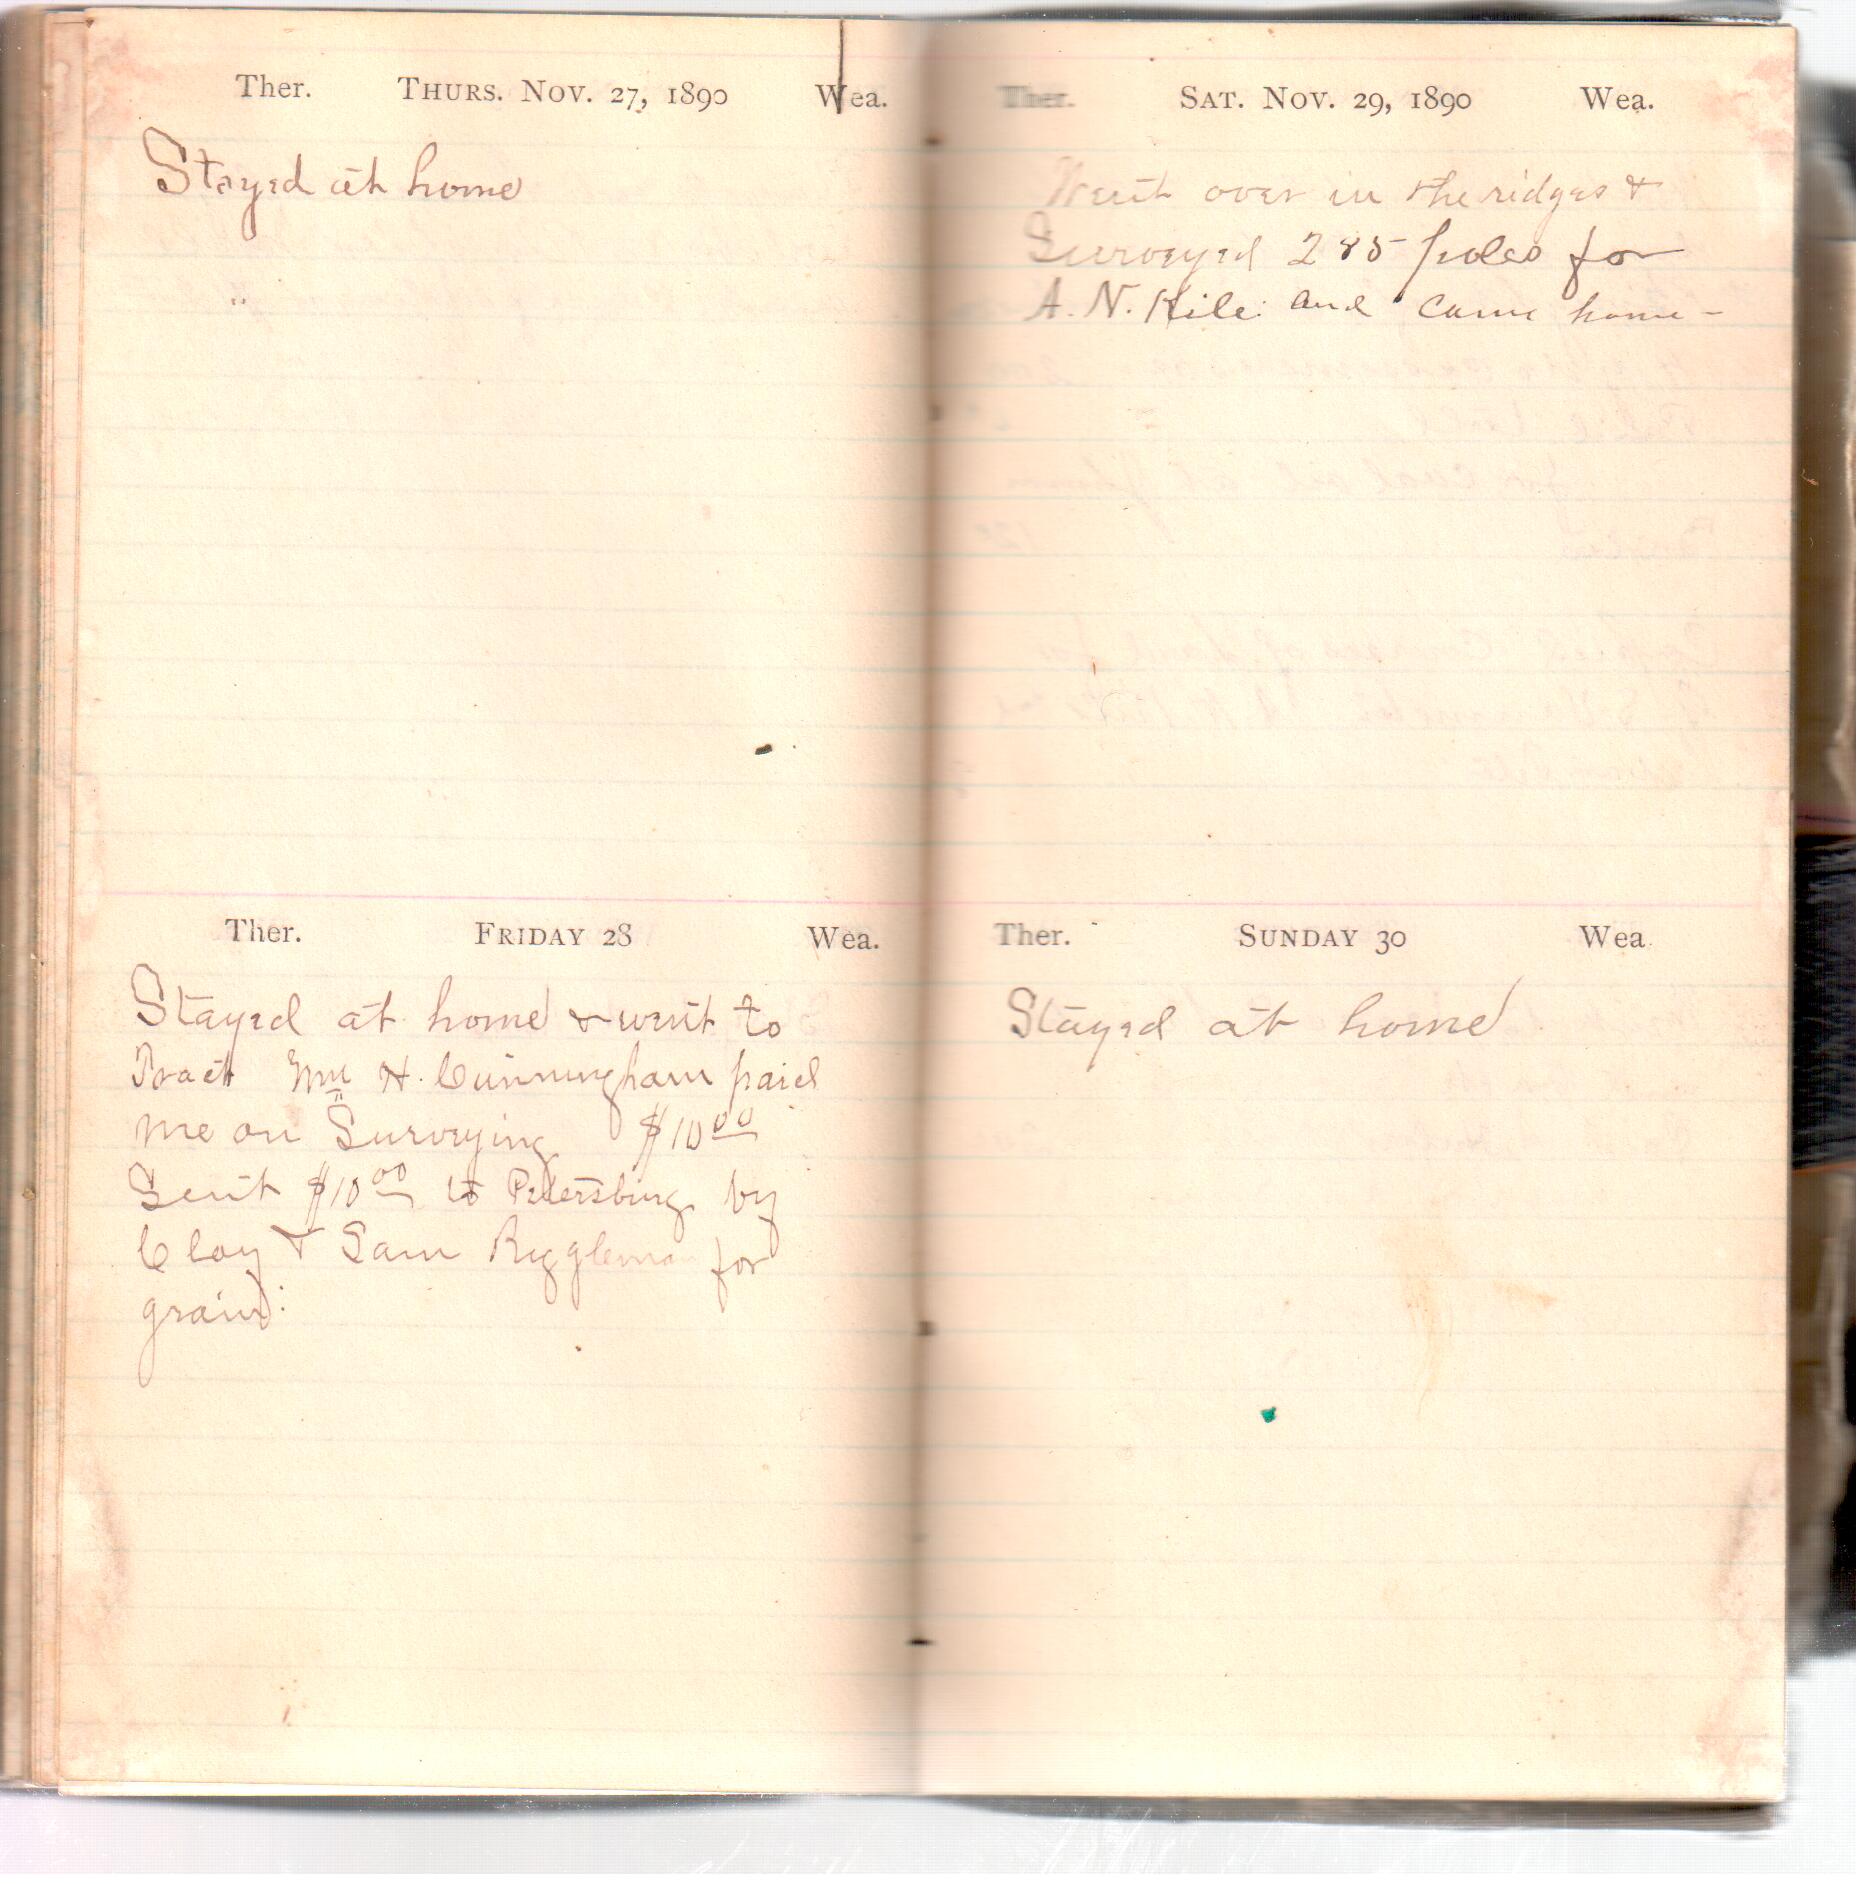 Ther. THURS. NOV. 27, 1890 Wea.
Stayed at home
Ther. FRIDAY 28 Wea.
Stayed at home & went to
Tract Wm H. Cunningham paid
me on Surveying $10 00
Sent $10 00 to Petersburg by
Clay & Sam Riggleman for
grain:
Ther. SAT. NOV. 29, 1890 Wea.
Went over in the ridges &
Surveyed 285 poles for
A. N. Kile and came home -
Ther. SUNDAY 30 Wea
Stayed at home